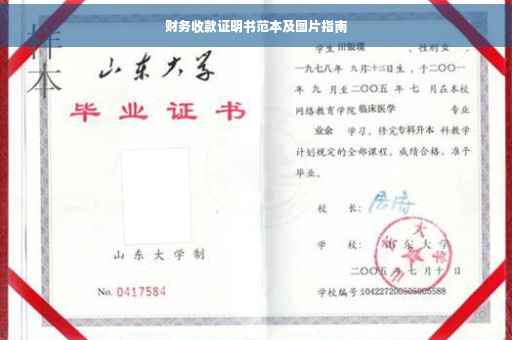 财务收款证明书范本及图片指南
样本
山东大学
毕业证书
山东大学制
No. 0417584
学生 田银瑞 ,性别 女 ,
一九七八年 九月十二日生,于二〇〇一
年 九 月至二〇〇五 年 七 月在本校
网络教育学院 临床医学 专业
业余 学习,修完专科升本 科教学
计划规定的全部课程,成绩合格,准予
毕业。
校 长:
学 校: 山东大学
二〇〇五 年 七 月 十 日
学校编号:104227200505005588